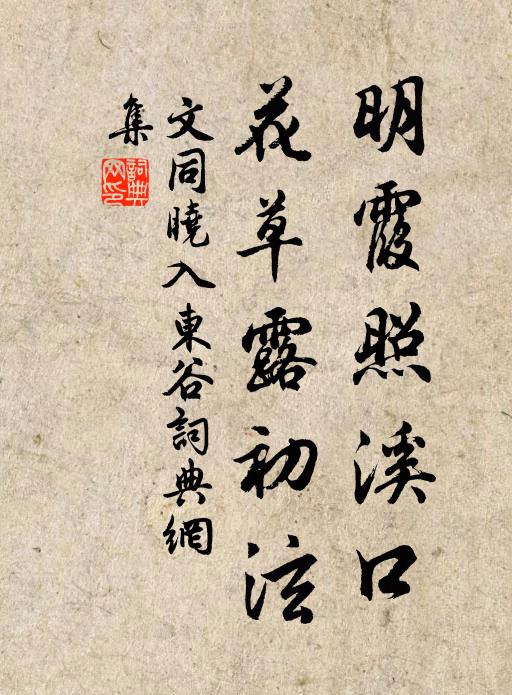 明霞照溪口
花草露初泫
文同曉入東谷詞典網
集
詞典網印